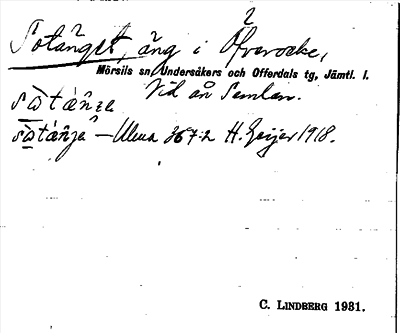 Sotänget, äng i Öfverocke,
Mörsils sn, Undersåkers och Offerdals tg, Jämtl. l.
Vid ån Semlan.
367:2 H. Geijer 1918.
C. LINDBERG 1931.